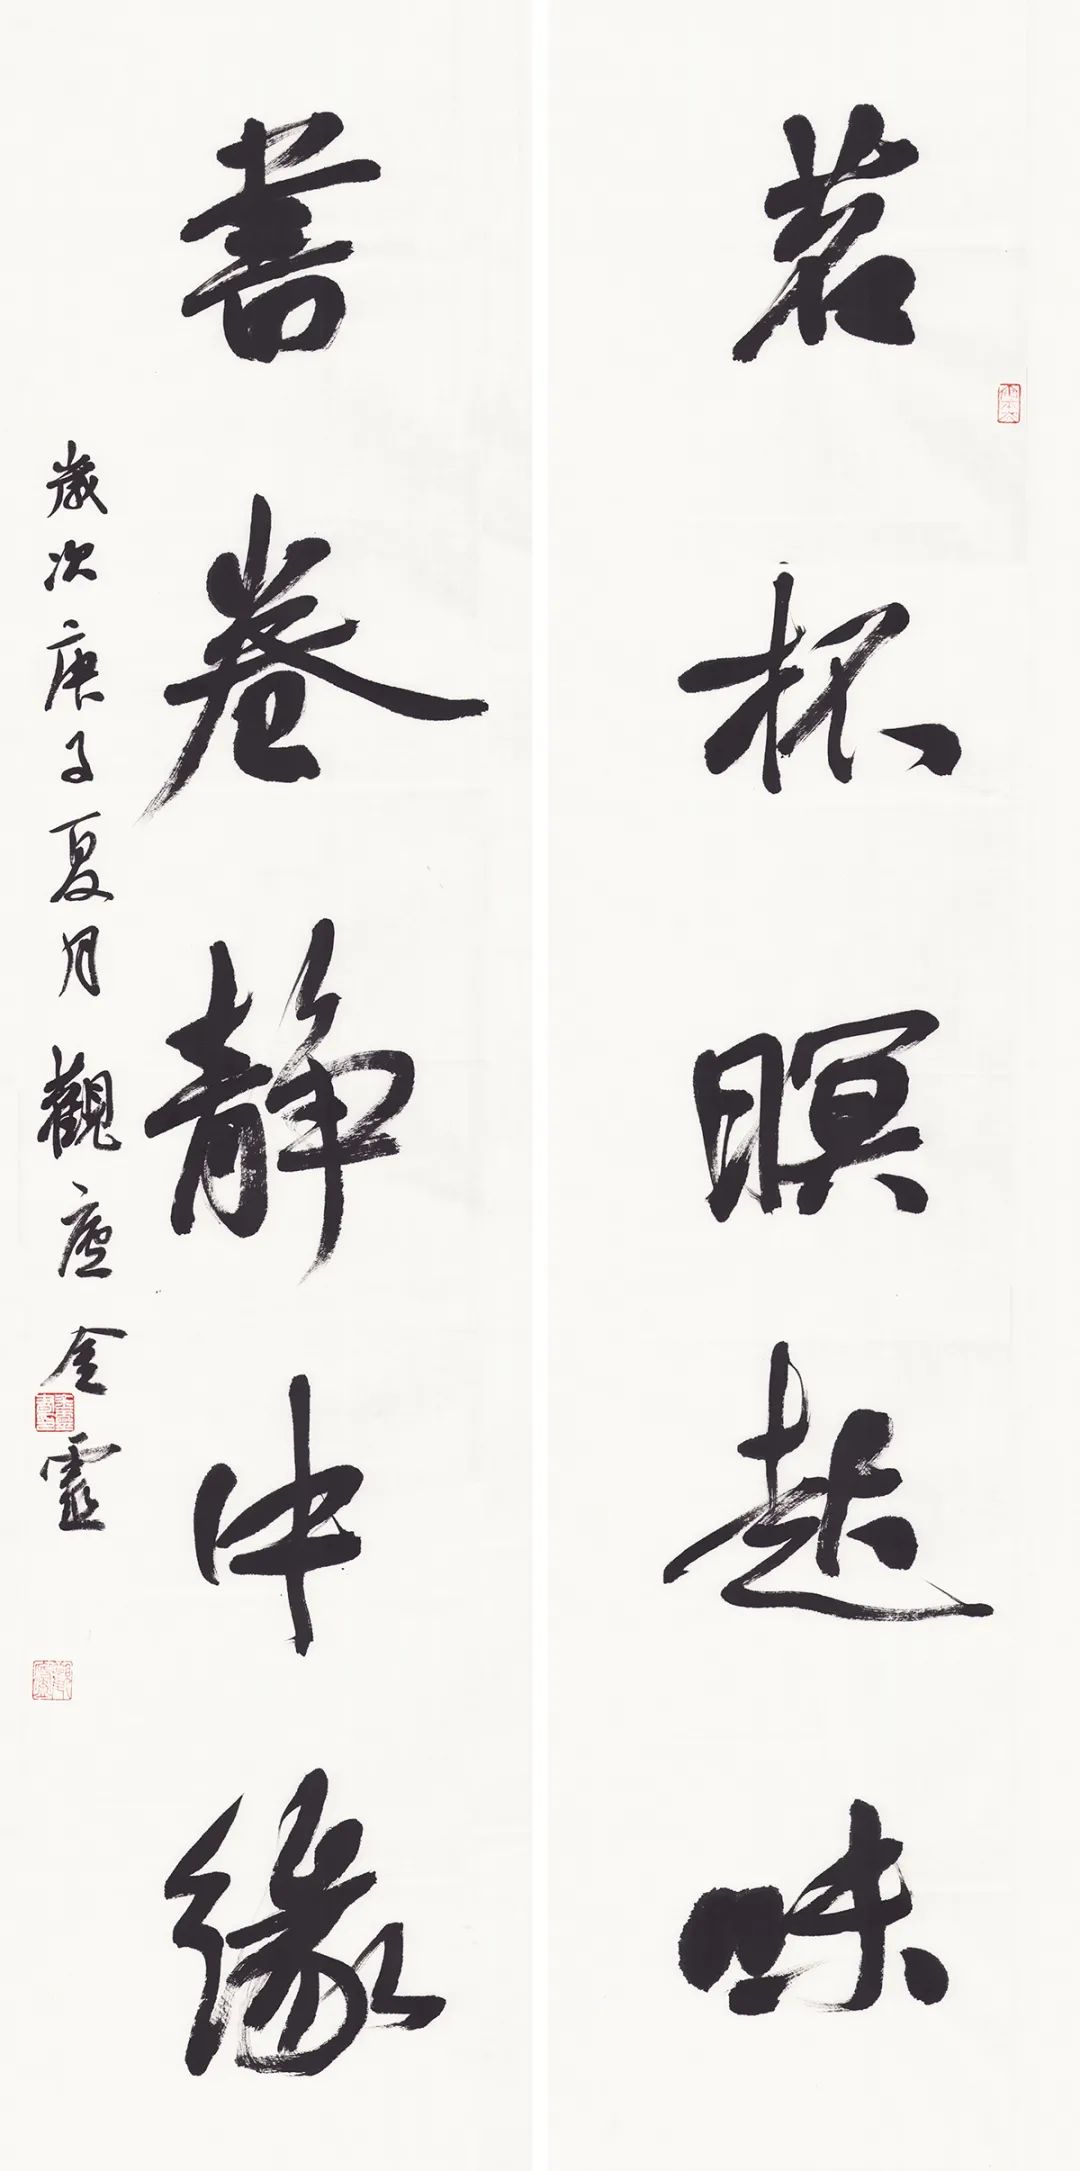 茗杯暝起味
書卷静中緣
歲次庚子夏月觀廬金靈